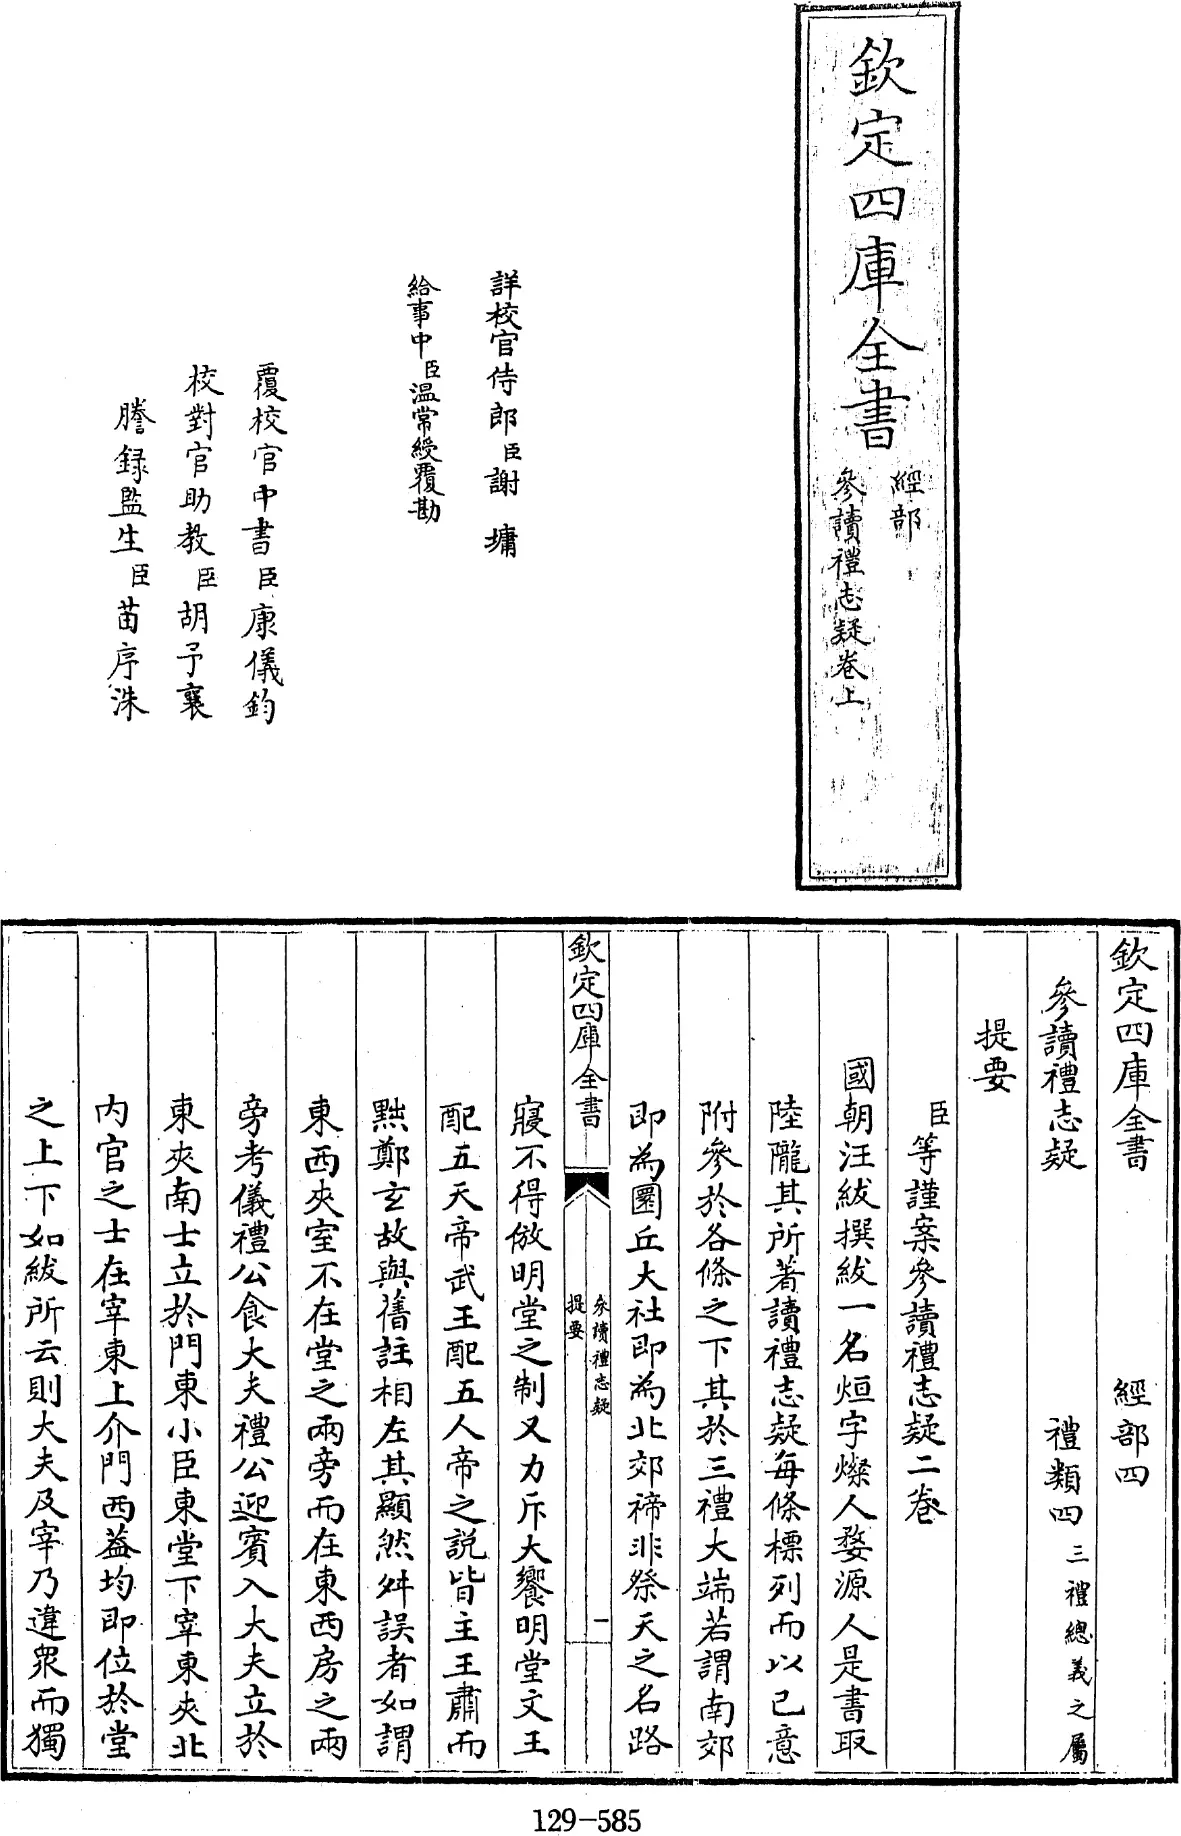 欽定四庫全書
經部
參讀禮志疑卷上
詳校官侍郎臣謝墉
給事中臣温常綬覆勘
覆校官中書臣康儀鈞
校對官助教臣胡予襄
謄錄監生臣苗序洙
欽定四庫全書 經部四
參讀禮志疑 禮類四 三禮總義之屬
提要
臣等謹案參讀禮志疑二卷
國朝汪紱撰紱一名烜字燦人婺源人是書取
陸隴其所著讀禮志疑每條標列而以己意
附參於各條之下其於三禮大端若謂南郊
即為圜丘大社即為北郊禘非祭天之名路
欽定四庫全書
參讀禮志疑
提要
一
寢不得倣明堂之制又力斥大饗明堂文王
配五天帝武王配五人帝之説皆主王肅而
黜鄭玄故與舊註相左其顯然舛誤者如謂
東西夾室不在堂之兩旁而在東西房之兩
旁考儀禮公食大夫禮公迎賓入大夫立於
東夾南士立於門東小臣東堂下宰東夾北
内官之士在宰東上介門西葢均即位於堂
之上下如紱所云則大夫及宰乃違衆而獨
129-585